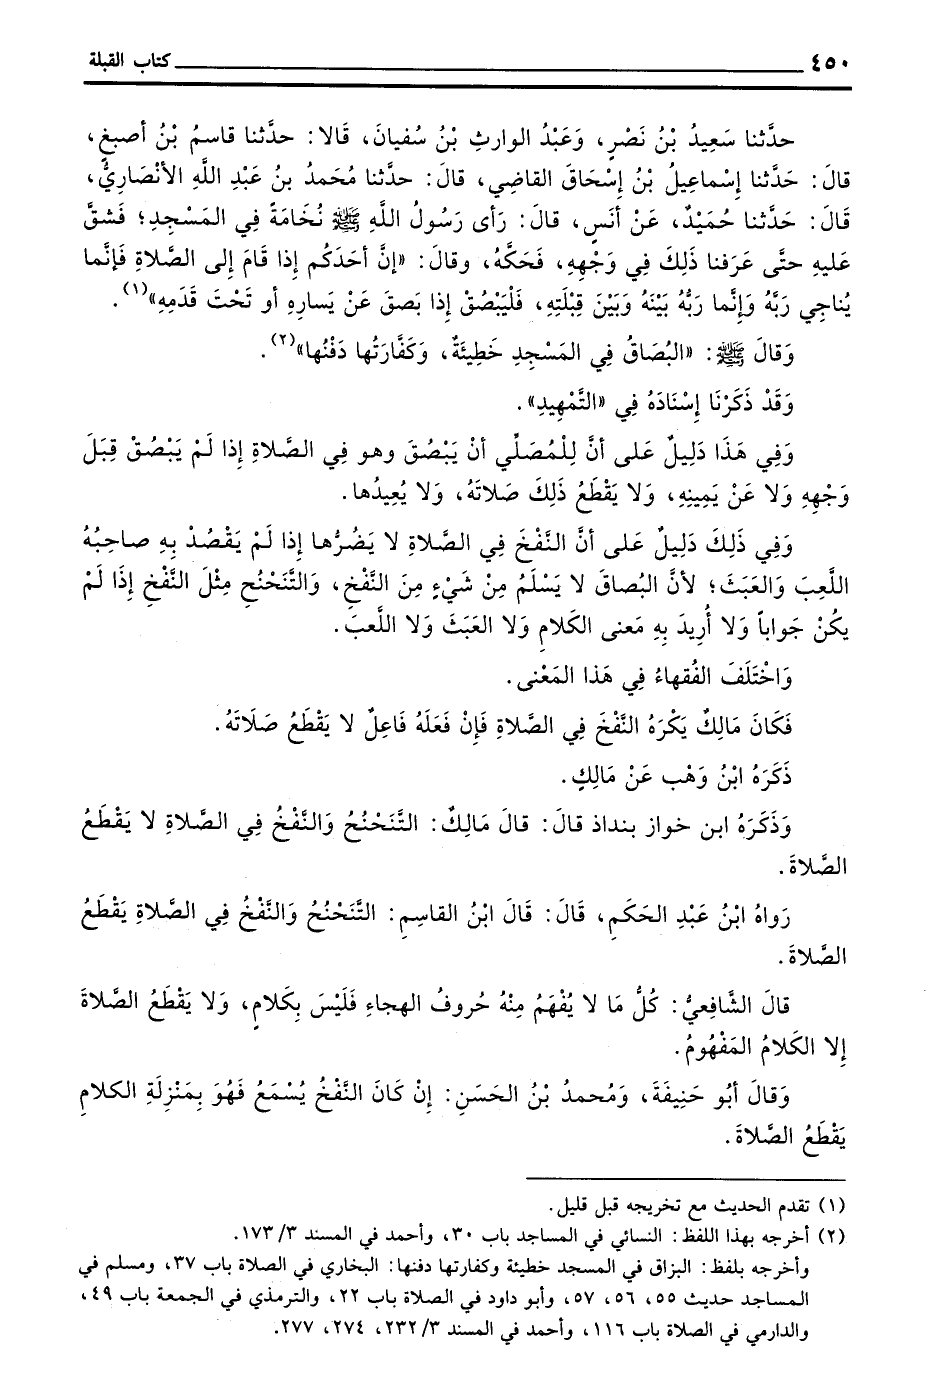 ٤٥٠ كتاب القبلة
حدَّثنا سَعِيدُ بْنُ نَصْرٍ، وَعَبْدُ الوارثِ بْنُ سُفيانَ، قَالا: حدَّثنا قاسمُ بْنُ أصبغ،
قالَ: حَدَّثنا إسْماعيلُ بْنُ إسْحَاقَ القاضِي، قالَ: حدَّثنا مُحَمدُ بنُ عَبْدِ اللَّهِ الأنْصَارِيُّ،
قَالَ: حَدَّثنا حُمَيْدٌ، عَنْ أنَسٍ، قالَ: رَأى رَسُولُ اللَّهِ ﷺ نُخَامَةً فِي المَسْجِدِ؛ فَشقَّ
عَليهِ حتَّى عَرَفنا ذَلِكَ فِي وَجْهِهِ، فَحَكَّهُ، وقالَ: «إنَّ أحَدَكُم إذا قامَ إلى الصَّلاةِ فَإنَّما
يُناجِي رَبَّهُ وَإنَّما رَبُّهُ بَيْنَهُ وَبَيْنَ قِبْلَتِهِ، فَلْيَبْصُقْ إذا بَصقَ عَنْ يَسارِهِ أو تَحْتَ قَدَمِهِ»(١).
وَقَالَ ﷺ: «البُصَاقُ فِي المَسْجِدِ خَطِيئَةٌ، وَكَفَّارَتُها دَفْنُها»(٢).
وَقَدْ ذَكَرْنَا إسْنَادَهُ فِي «التَّمْهِيدِ».
وَفِي هَذَا دَلِيلٌ عَلى أنَّ لِلْمُصَلِّي أنْ يَبْصُقَ وهو فِي الصَّلاةِ إذا لَمْ يَبْصُقْ قِبَلَ
وَجْهِهِ ولا عَنْ يَمِينِهِ، وَلا يَقْطَعُ ذَلِكَ صَلاتَهُ، وَلا يُعِيدُها.
وَفِي ذَلِكَ دَلِيلٌ عَلى أنَّ النَّفْخَ فِي الصَّلاةِ لا يَضُرُّها إذا لَمْ يَقْصُدْ بِهِ صاحِبُهُ
اللَّعِبَ وَالعَبَثَ؛ لأنَّ البُصاقَ لا يَسْلَمُ مِنْ شَيْءٍ مِنَ النَّفْخِ، وَالتَّنَحْنُحِ مِثْلَ النَّفْخِ إذَا لَمْ
يكُنْ جَواباً وَلا أُرِيدَ بِهِ مَعنى الكَلامِ وَلا العَبَثَ وَلا اللَّعبَ.
وَاخْتَلَفَ الفُقهاءُ فِي هَذا المَعْنى.
فَكَانَ مَالِكٌ يَكْرَهُ النَّفْخَ فِي الصَّلاةِ فَإنْ فَعَلَهُ فَاعِلٌ لا يَقْطَعُ صَلَاتَهُ.
ذَكَرَهُ ابْنُ وَهْب عَنْ مَالِكٍ.
وَذَكَرَهُ ابن خواز بنداذ قالَ: قالَ مَالِكٌ: التَّنَحْنُحُ وَالنَّفْخُ فِي الصَّلاةِ لا يَقْطَعُ
الصَّلاةَ.
رَواهُ ابْنُ عَبْدِ الحَكَمِ، قَالَ: قَالَ ابْنُ القاسِم: التَّنَحْنُحُ وَالنَّفْخُ فِي الصَّلاةِ يَقْطَعُ
الصَّلاةَ.
قالَ الشَّافِعِيُّ: كُلُّ مَا لا يُفْهَمُ مِنْهُ حُروفُ الهجاءِ فَلَيْسَ بِكَلامٍ، وَلا يَقْطَعُ الصَّلاةَ
إلا الكَلامُ المَفْهُومُ.
وَقالَ أبُو حَنِيفَةَ، وَمُحمدُ بْنُ الحَسَنِ: إنْ كَانَ النَّفْخُ يُسْمَعُ فَهُوَ بِمَنْزِلَةِ الكلامِ
يَقْطَعُ الصَّلاةَ.
(١) تقدم الحديث مع تخريجه قبل قليل.
(٢) أخرجه بهذا اللفظ: النسائي في المساجد باب ٣٠، وأحمد في المسند ٣/ ١٧٣.
وأخرجه بلفظ: البزاق في المسجد خطيئة وكفارتها دفنها: البخاري في الصلاة باب ٣٧، ومسلم في
المساجد حديث ٥٥، ٥٦، ٥٧، وأبو داود في الصلاة باب ٢٢، والترمذي في الجمعة باب ٤٩،
والدارمي في الصلاة باب ١١٦، وأحمد في المسند ٣/ ٢٣٢، ٢٧٤، ٢٧٧.